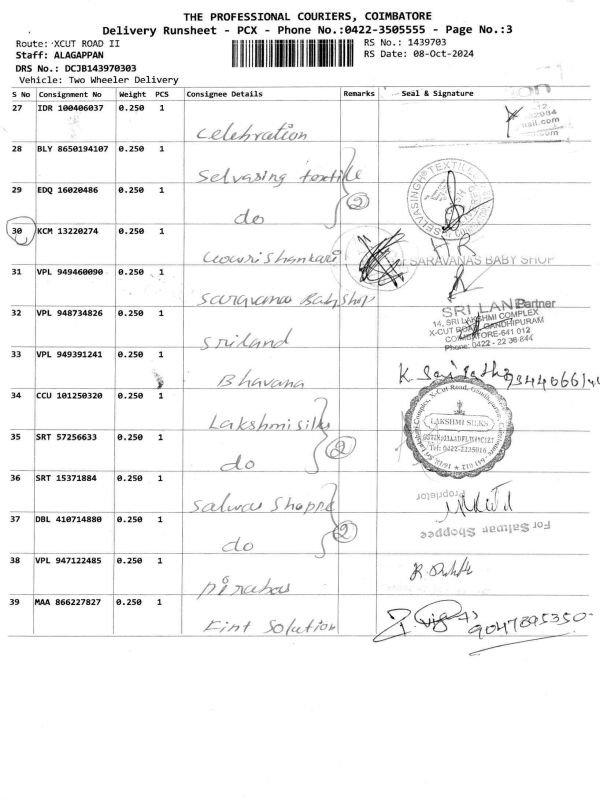 THE PROFESSIONAL COURIERS, COIMBATORE
Delivery Runsheet - PCX - Phone No.:0422-3505555 - Page No.:3
Route: XCUT ROAD II
RS No.: 1439703
Staff: ALAGAPPAN
RS Date: 08-Oct-2024
DRS No.: DCJB143970303
Vehicle: Two Wheeler Delivery
S No Consignment No Weight PCS Consignee Details Remarks Seal & Signature
27 IDR 100406037 0.250 1
celebration
28 BLY 8650194107 0.250 1
Selvasing textile
29 EDQ 16020486 0.250 1
do 2
30 KCM 13220274 0.250 1
Gowrishankari
SARAVANAS BABY SHOP
31 VPL 949460090 0.250 1
Saravanas Babyshop
SRI LAND
Partner
14, SRI LAKSHMI COMPLEX
X-CUT ROAD, GANDHIPURAM
COIMBATORE-641 012
Phone: 0422 - 22 36 844
32 VPL 948734826 0.250 1
Sriland
33 VPL 949391241 0.250 1
Bhavana
34 CCU 101250320 0.250 1
Lakshmi silks
LAKSHMI SILKS
Tel: 0422-2235016
35 SRT 57256633 0.250 1
do 2
36 SRT 15371884 0.250 1
Salwar Shoppe
Proprietor
37 DBL 410714880 0.250 1
do 2
For Salwar Shoppee
38 VPL 947122485 0.250 1
39 MAA 866227827 0.250 1
Eint Solution
9047895350